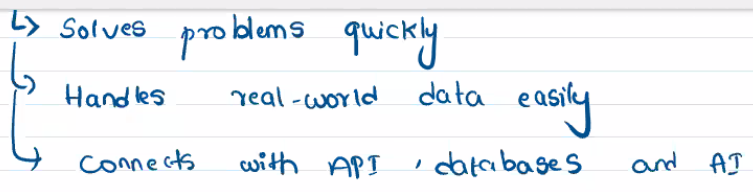 ↳ Solves problems quickly
↳ Handles real-world data easily
↳ connects with API, databases and AI